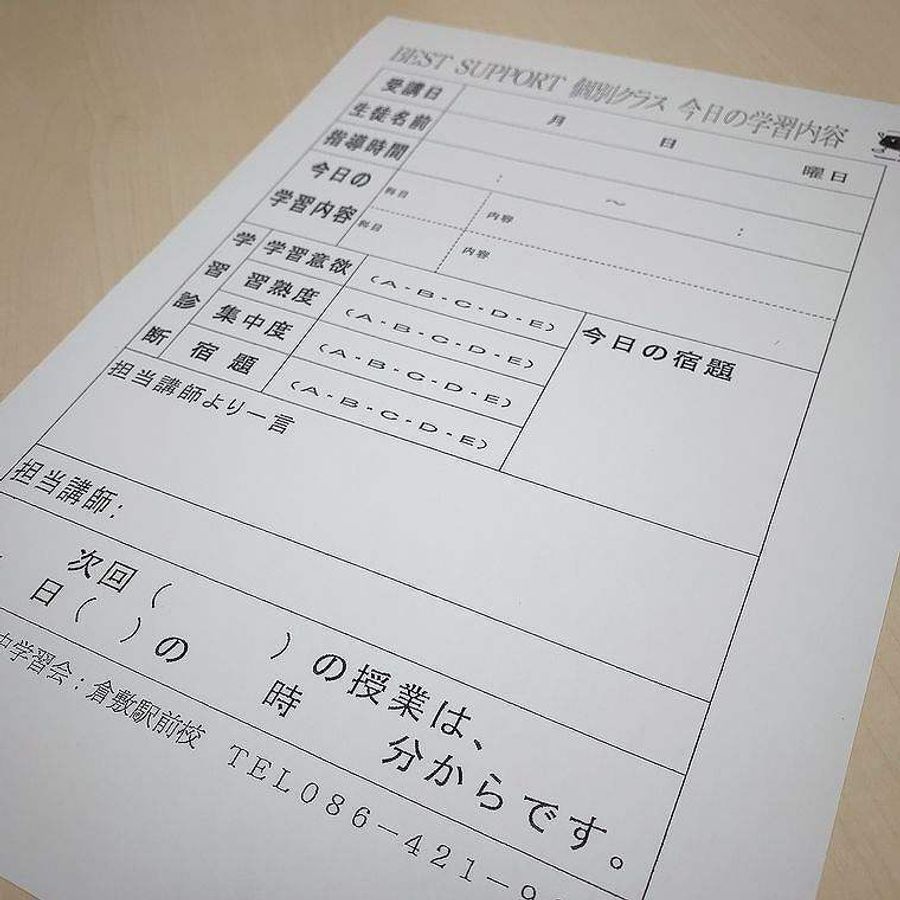 BEST SUPPORT 個別クラス 今日の学習内容
受講日 月 日 曜日
生徒名前
指導時間 : ~ :
今日の学習内容
科目 内容
科目 内容
学習診断
学習意欲 (A・B・C・D・E)
習熟度 (A・B・C・D・E)
集中度 (A・B・C・D・E)
宿題 (A・B・C・D・E)
今日の宿題
担当講師より一言
担当講師:
次回( )の授業は、
日( )の 時 分からです。
中学習会:倉敷駅前校 TEL086-421-9